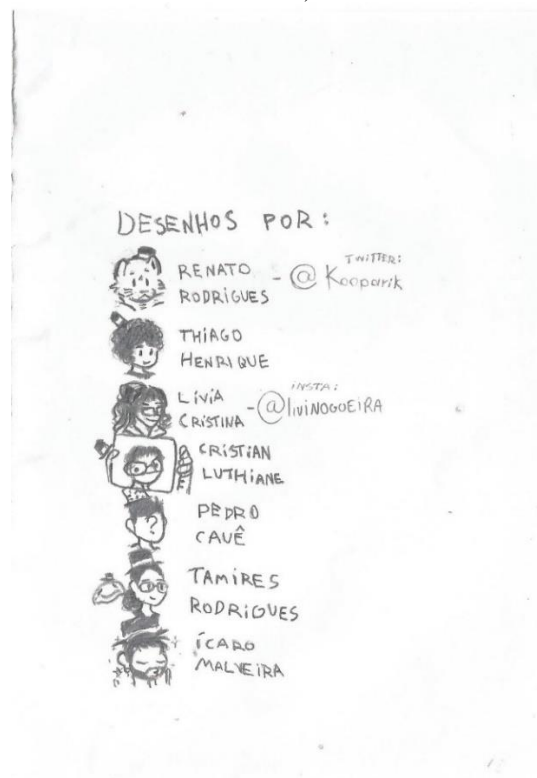 DESENHOS POR:
TWITTER:
RENATO RODRIGUES - @Kooparik
THIAGO
HENRIQUE
INSTA:
LIVIA CRISTINA - @livinogoeira
CRISTIAN
LUTHIANE
PEDRO
CAUÊ
TAMIRES
RODRIGUES
ÍCARO
MALVEIRA